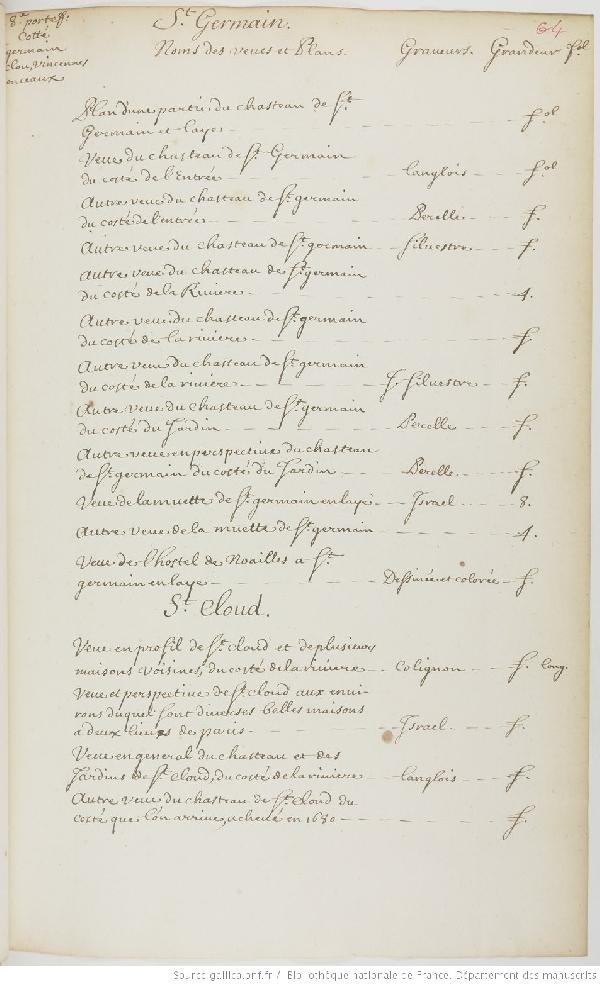 8.e portef.
Cotté
germain
clou, vincennes
onceaux
St. Germain.
64
Noms des veues et Plans. Graveurs. Grandeur fol
Plan d'une partie du chasteau de St.
Germain et laye fol
Veue du chasteau de St. Germain
du costé de l'Entrée Langlois fol
Autre veue du chasteau de St. germain
du costé de l'entrée Perelle f.
Autre veue du chasteau de St. germain Silvestre f.
Autre veue du chasteau de St. germain
du costé de la Riviere 4.
Autre veue du chasteau de St. germain
du costé de la riviere f.
Autre veue du chasteau de St. germain
du costé de la riviere I. Silvestre f.
Autre veue du chasteau de St. germain
du costé du Jardin Perelle f.
Autre veue en perspective du chasteau
de St. germain du costé du Jardin Perelle f.
Veue de la muette de St. germain en laye Israel 8.
Autre veue de la muette de St. germain 4.
Veue de l'hostel de Noailles a St.
germain en laye Dessinée et colorée f.
St. Cloud.
Veue en profil de St. cloud et de plusieurs
maisons voisines, du costé de la riviere Colignon f. long.
Veue et perspective de St. cloud aux envi-
rons duquel sont diverses belles maisons
a deux lieues de paris Israel f.
Veue en general du chasteau et des
Jardins de St. cloud, du costé de la riviere Langlois f.
Autre veue du chasteau de St. cloud du
costé que l'on arrive, achevé en 1680 f.
Source gallica.bnf.fr / Bibliothèque nationale de France. Département des manuscrits